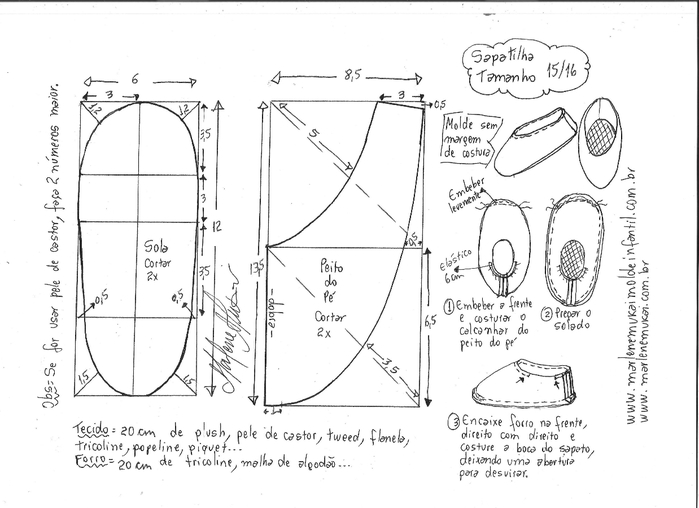 Sapatilha
Tamanho 15/16
6
3
1,2
1,2
3,5
3
12
3,5
Sola
Cortar
2x
0,5
0,5
1,5
1,5
Obs= Se for usar pele de castor, faça 2 números maior.
Marlene Mukai
8,5
3
0,5
5
13,5
0,5
Peito
do
Pé
Cortar
2x
-dobra-
6,5
3,5
1
Molde sem
margem
de costura
Embeber
levemente
Elástico
6cm
① Embeber a frente
e costurar o
calcanhar do
peito do pé
② Pregar o
solado
③ Encaixe forro na frente,
direito com direito e
costure a boca do sapato,
deixando uma abertura
para desvirar.
Tecido= 20cm de plush, pele de castor, tweed, flanela,
tricoline, popeline, piquet...
Forro= 20cm de tricoline, malha de algodão...
www.marlenemukaimoldeinfantil.com.br
www.marlenemukai.com.br